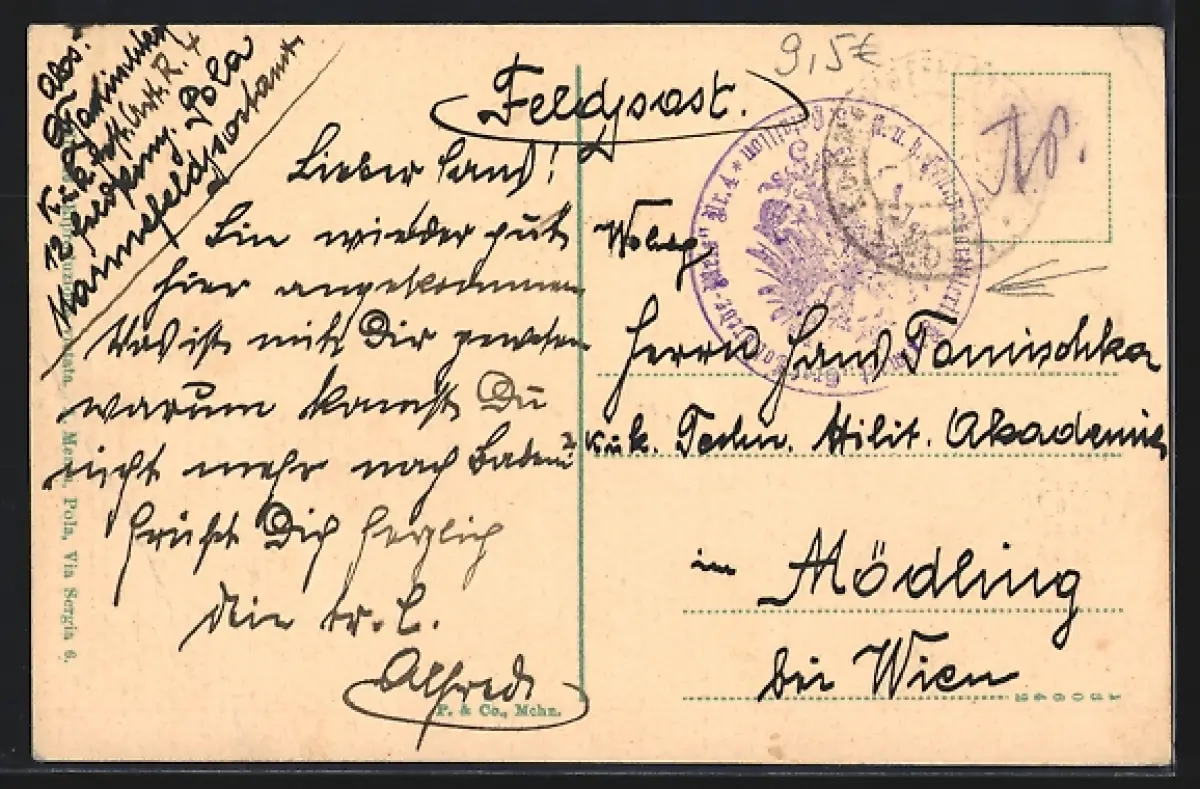 9,5€
Feldpost.
Abs:
K.u.k. Fest. Art. R. 4
12 Feldkomp. Pola
Marinefeldpostamt
Lieber Hans!
Bin wieder gut
hier angekommen
Was ist mit Dir gewesen
warum kamst Du
nicht mehr nach Baden?
Grüßt Dich herzlich
dein tr. C.
Alfred
Wohlg
Herrn Hans Tomischka
k.u.k. Techn. Milit. Akademie
in Mödling
bei Wien
Pola, Via Sergia 6.
P. & Co., Mchn.
130942